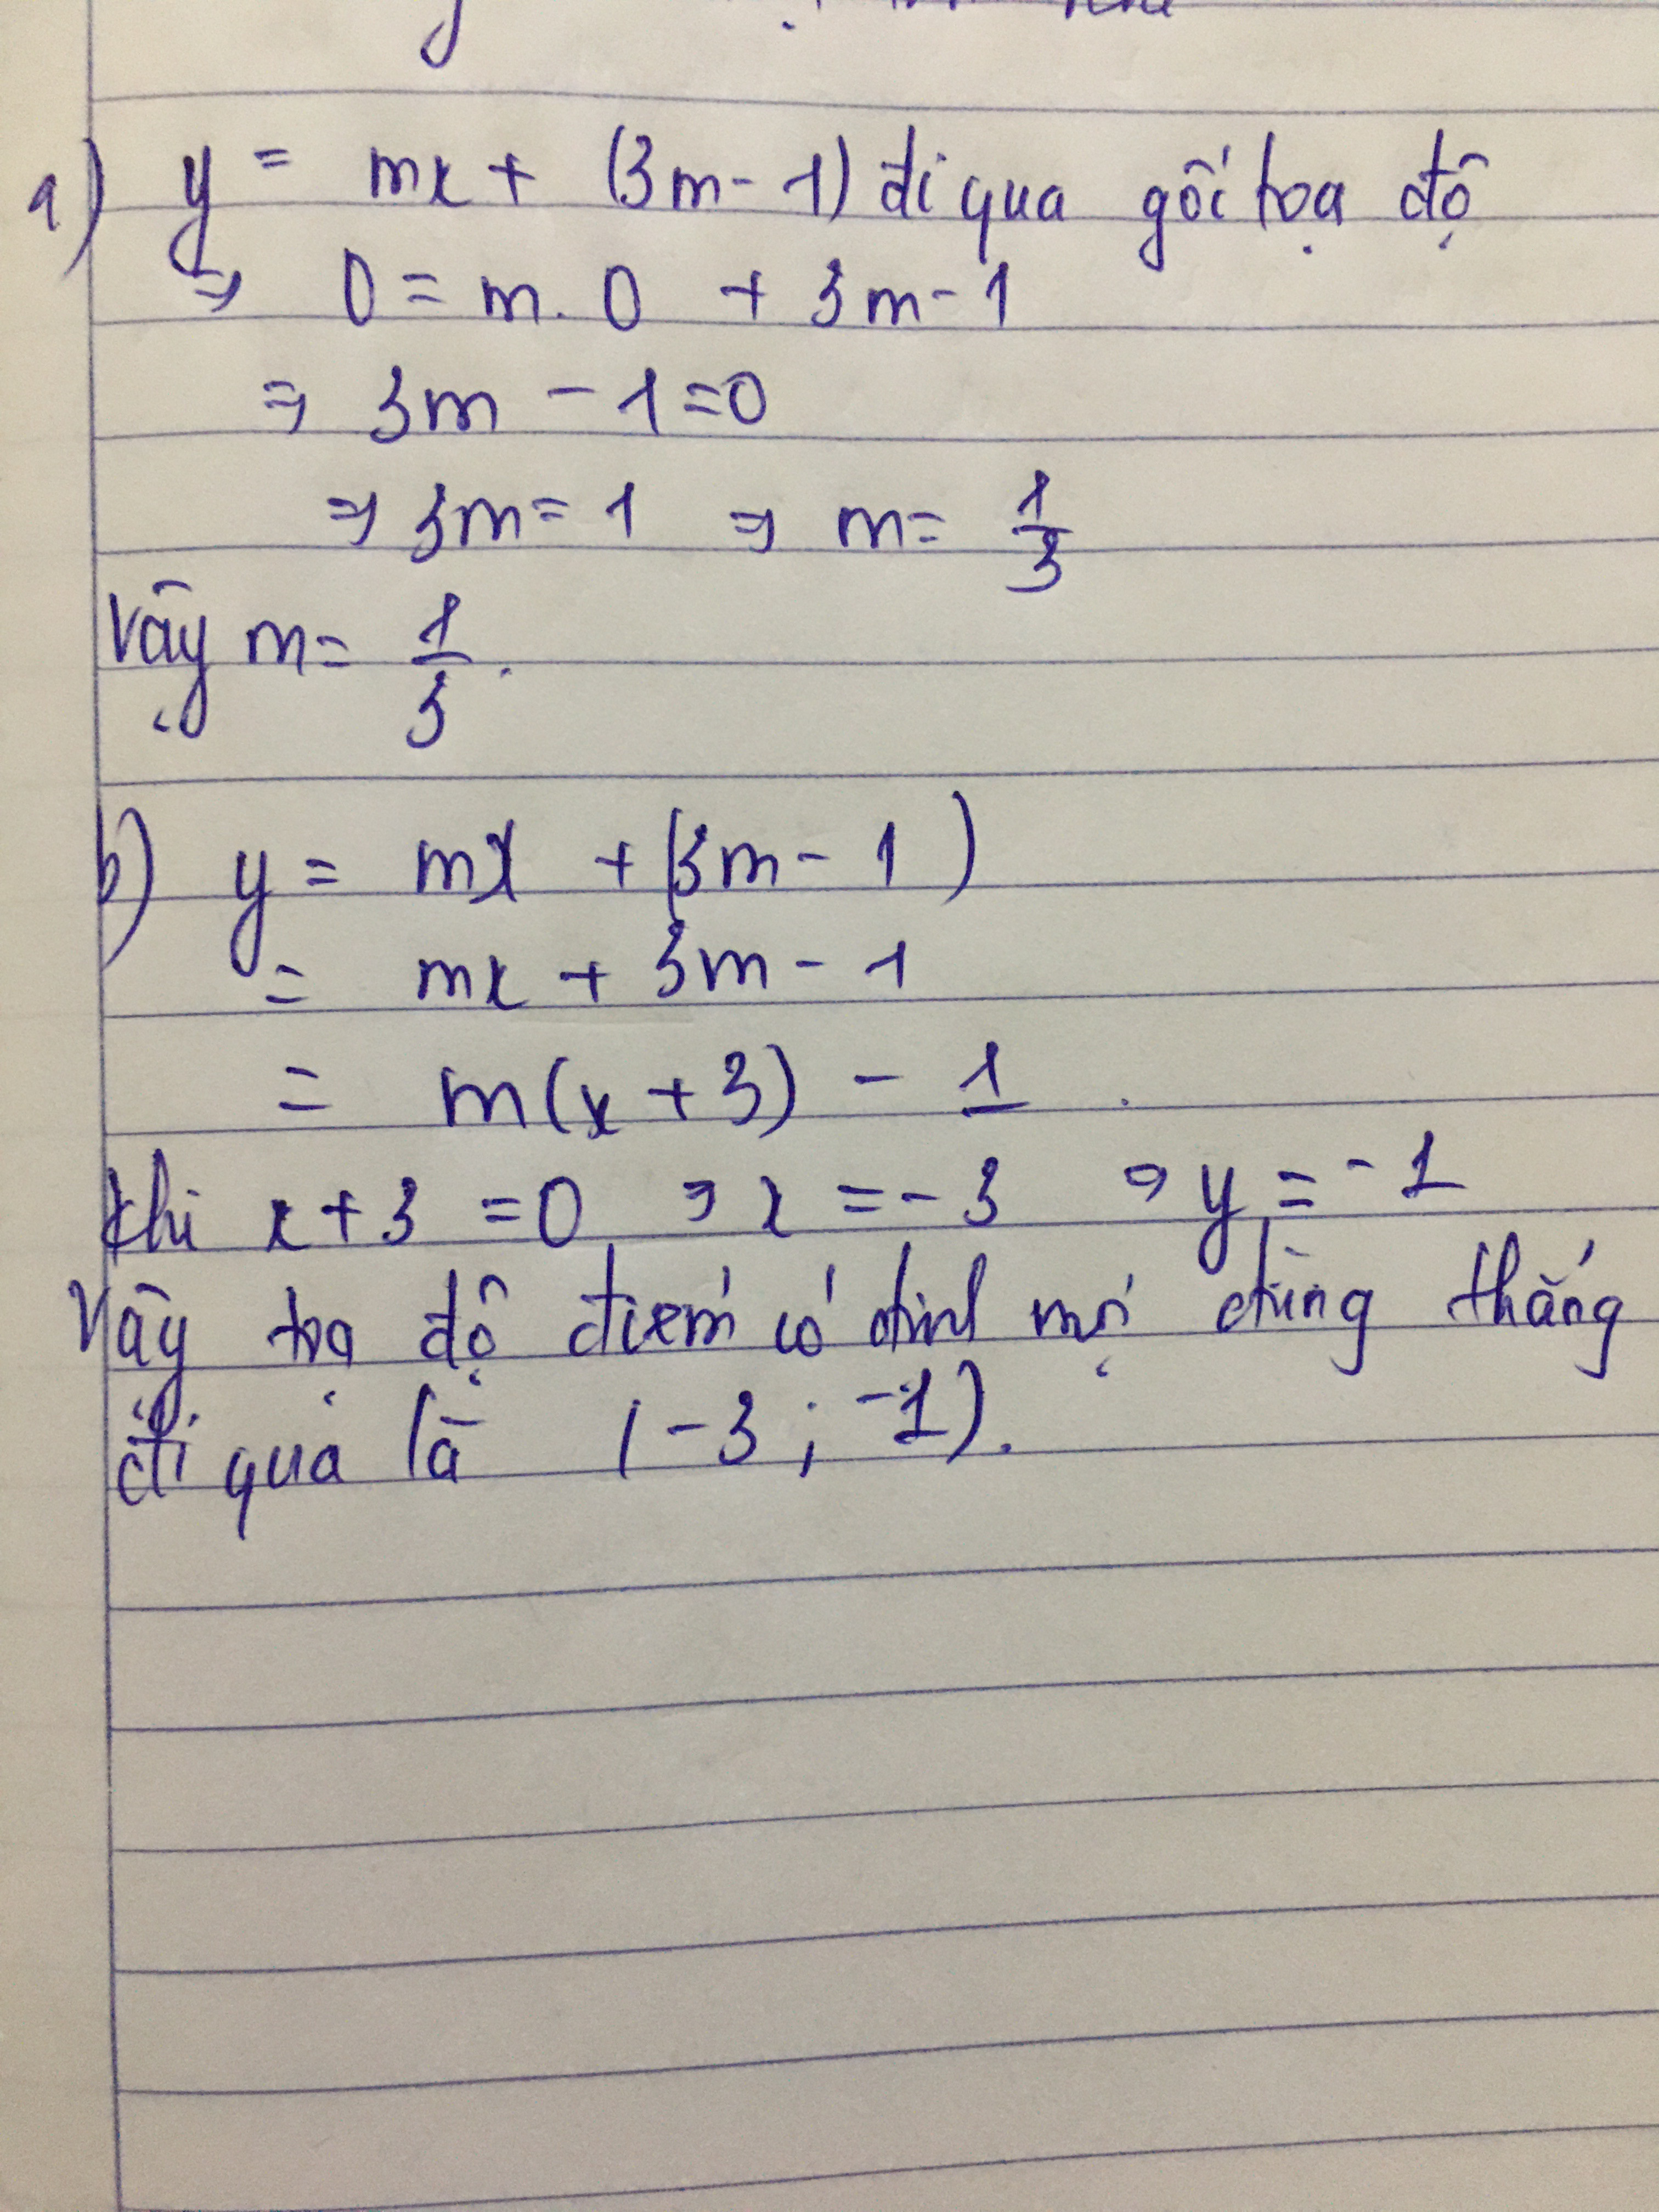 a) y = mx + (3m - 1) đi qua gốc tọa độ
⇒ 0 = m. 0 + 3m - 1
⇒ 3m - 1 = 0
⇒ 3m = 1 ⇒ m = 1/3
Vậy m = 1/3.
b) y = mx + (3m - 1)
= mx + 3m - 1
= m(x + 3) - 1
khi x + 3 = 0 ⇒ x = - 3 ⇒ y = - 1
Vậy tọa độ điểm cố định mọi đường thẳng
đi qua là (-3 ; -1).